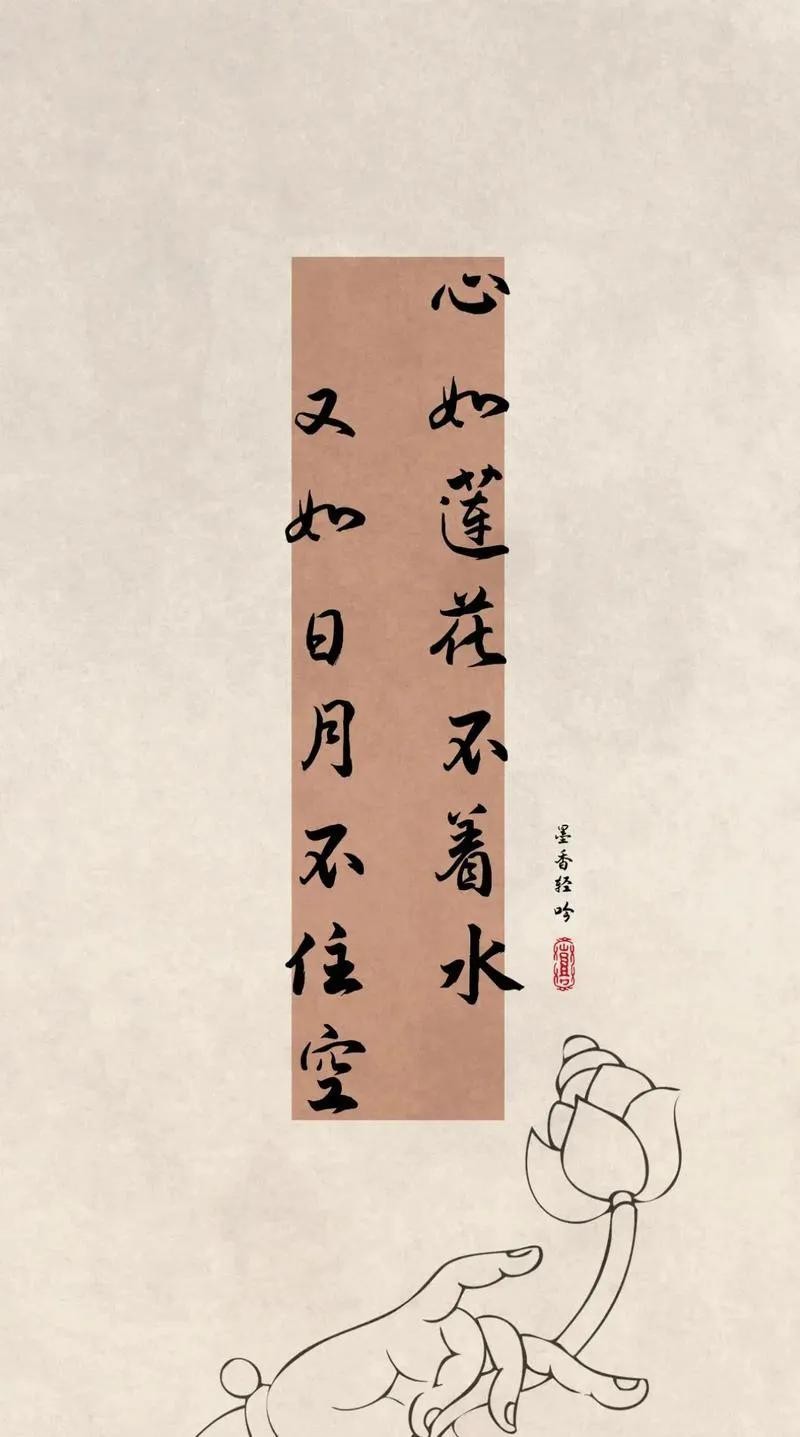 心如莲花不着水
又如日月不住空
墨香轻吟